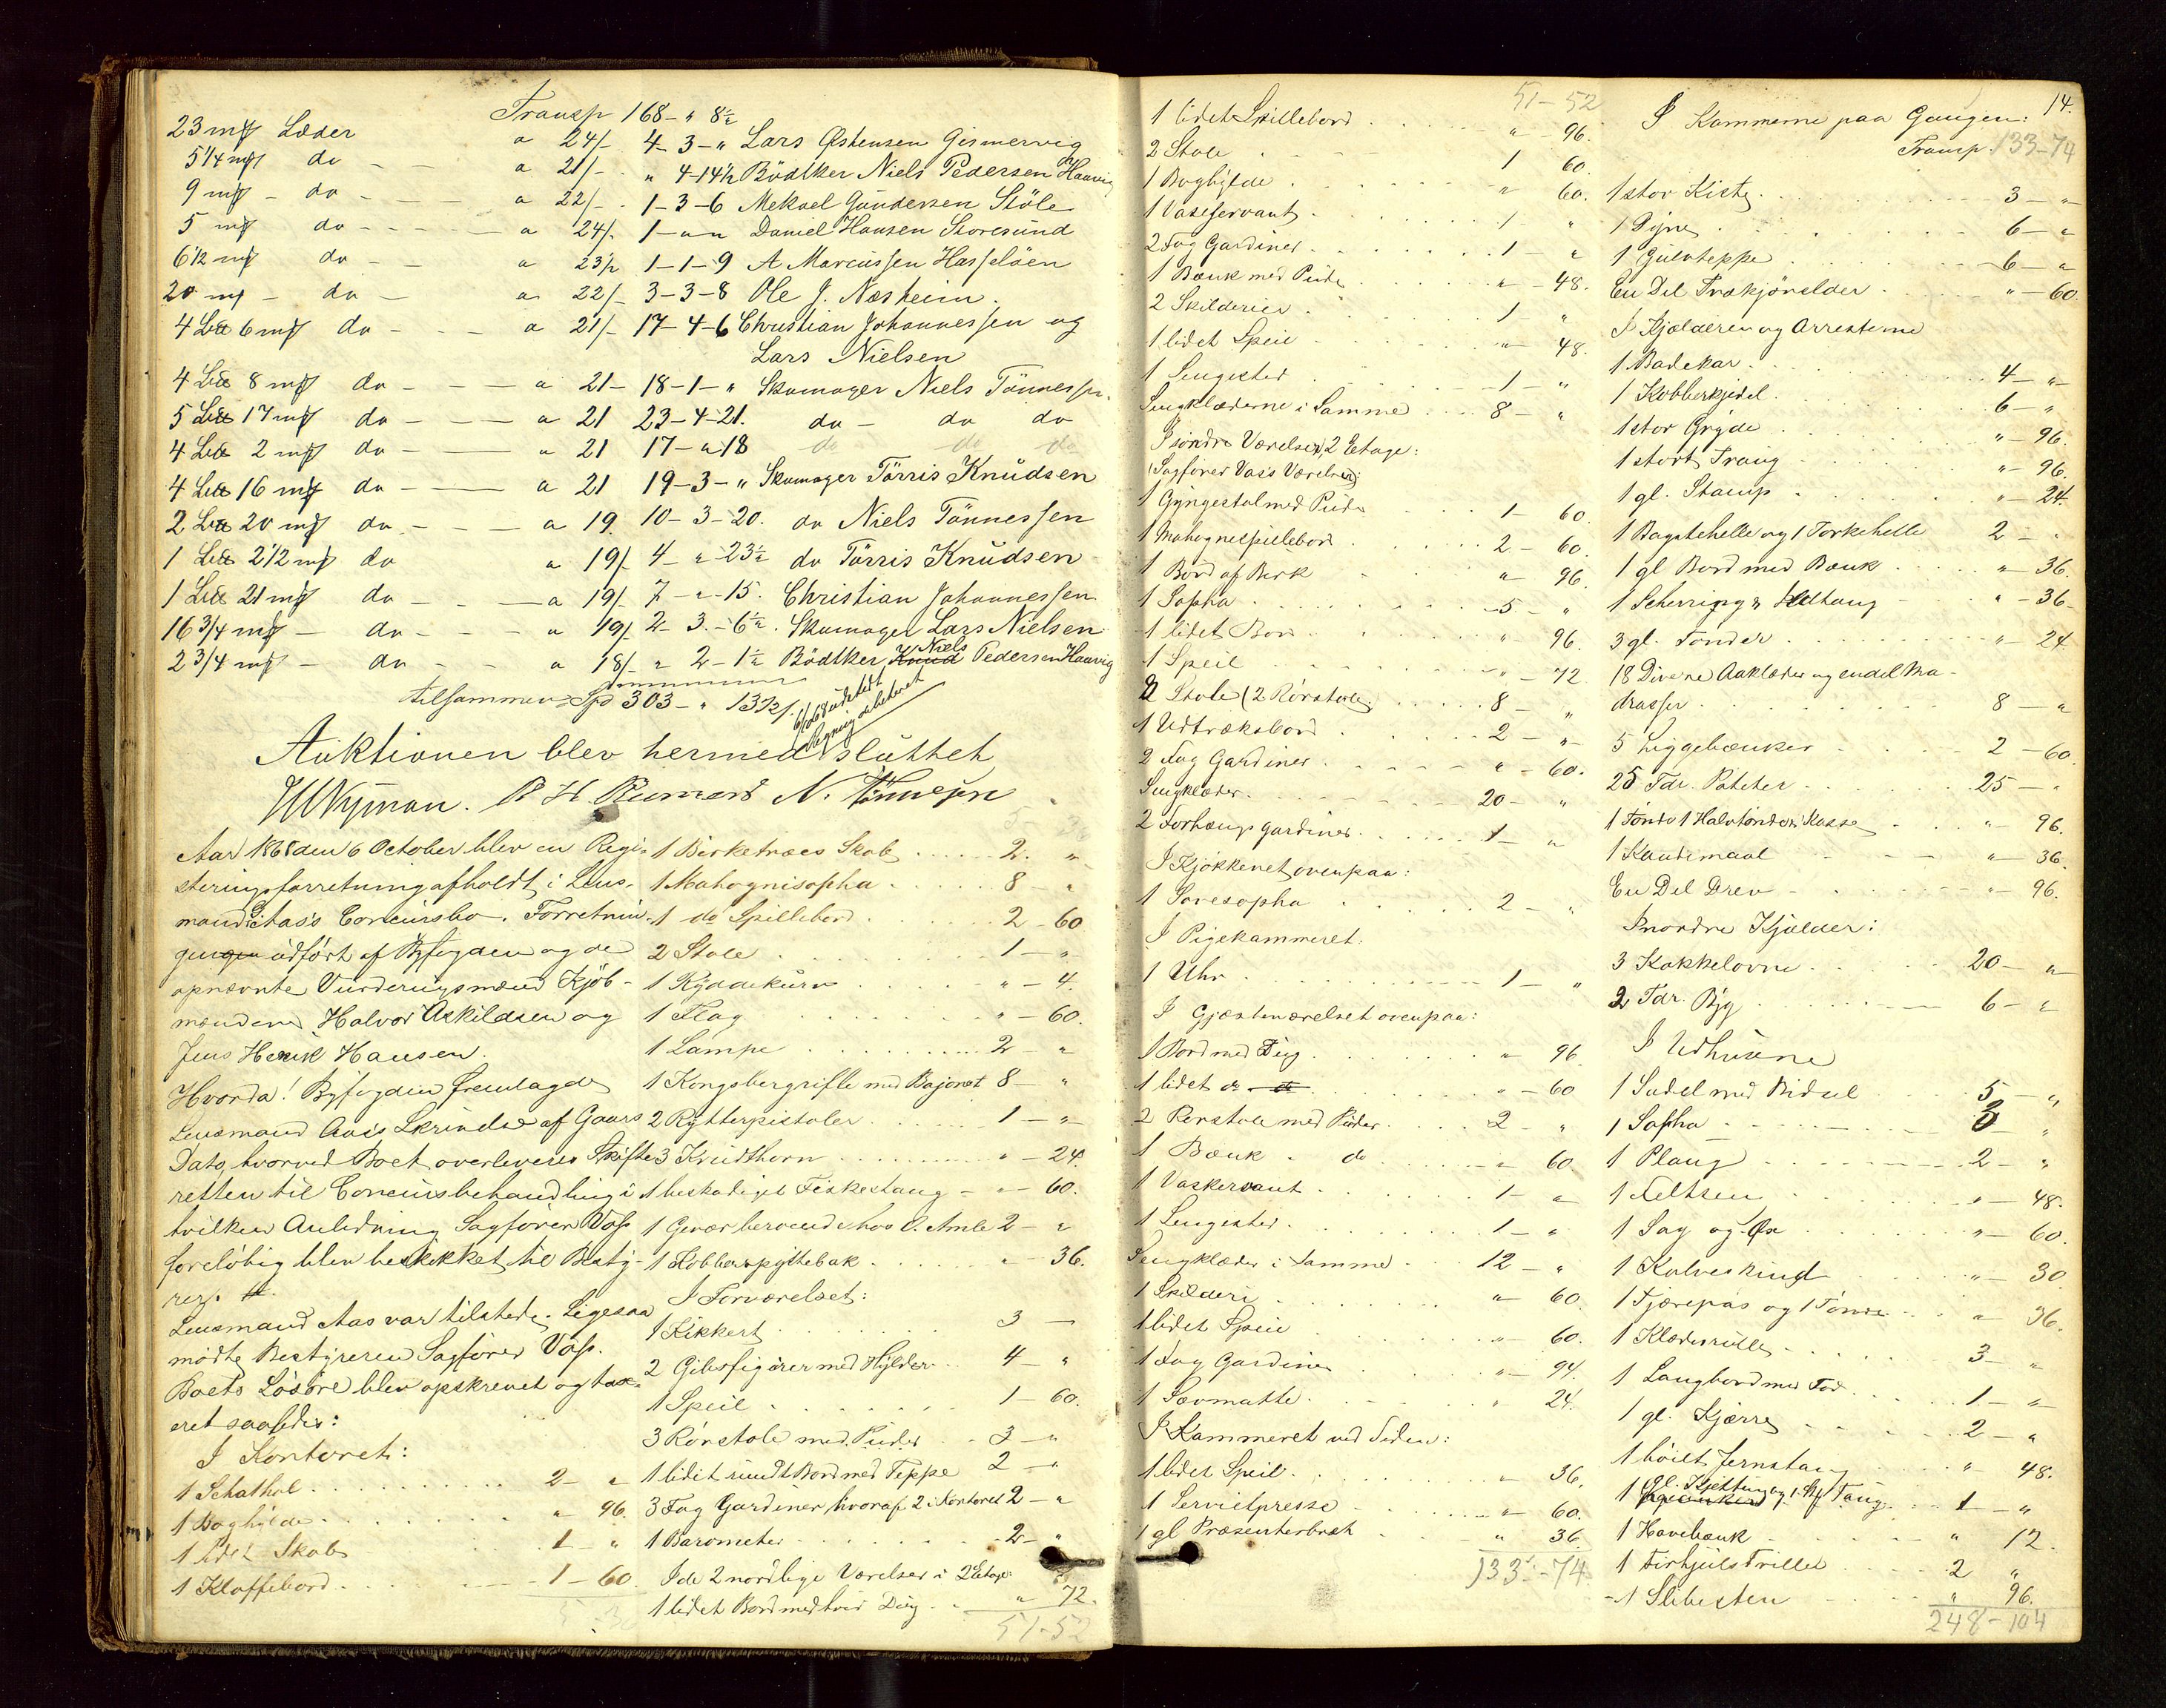 Transp 168 - " 8½
23 mk Læder a 24/- 4 - 3 - " Lars Østensen Gismervig
5 1/4 mk do - a 21/- " 4 - 14½ Bödtker Niels Pedersen Haavig
9 mk - do - a 22/- 1 - 3 - 6 Mekael Gundersen Stöle
5 mk do - a 24/- 1 - " " Daniel Hansen Storesund
6 1/2 mk do - a 23½ 1 - 1 - 9 A Marcussen Hasselöen
20 mk - do - a 22/- 3 - 3 - 8 Ole J. Næsheim.
4 6 mk do - a 21/- 17 - 4 - 6 Christian Johannessen og
Lars Nielsen
4 8 mk do - a 21 - 18 - 1 - " Skomager Niels Tönnessen
5 17 mk do - a 21 23 - 4 - 21. do - do do
4 2 mk do - a 21 17 - " 18 do do do
4 16 mk do - a 21 19 - 3 - " Skomager Törris Knudsen
2 20 mk do - a 19 10 - 3 - 20. do Niels Tönnessen
1 2 1/2 mk do a 19/- 4 - " - 23½ do Törris Knudsen
1 21 mk do - a 19/- 7 - " - 15. Christian Johannessen
16 3/4 mk - do - a 19/- 2 - 3 - 6½. Skomager Lars Nielsen
2 3/4 mk - do - a 18/- " 2 - 1½ Bödtker Knud Niels Pedersen Haavig
tilsammen Spd 303 - " 13½
Auktionen blev hermed sluttet
N. Tönnesen
Aar 1868 den 6 October blev en Regi-
steringsforretning afholdt i Lens-
mand Aas's Concursbo. Forretnin-
gen udført af Byfogden og de
opnævnte Vurderingsmænd Kjöb-
mændene Halvor Askildsen og
Jens Henrik Hansen.
Hvorda! Byfogden fremlagde
Lensmand Aas's Skrivelse af Gaars
Dato, hvorved Boet overleveres Skifte
retten til Concursbehandling i
hvilken Anledning Sagförer Voss
foreløbig blev beskikket til Besty-
rer.
Lensmand Aas var tilstede. Ligesaa
mödte Bestyreren Sagförer Voss.
Boets Lösöre blev opskrevet og tax-
eret saaledes:
I Kontoret:
1 Schathol 2 - "
1 Boghylde " 96.
1 lidet Skab 1 - "
1 Klaffebord 1 - 60
1 Birketræes Skab 2. "
1 Mahognisopha 8 - "
1 do Spillebord 2 - 60
2 Stole 1 - "
1 Kyddekurv " - 4.
1 Flag " - 60.
1 Lampe 2 - "
1 Kongsbergrifle med Bajonet 8 - "
2 Rytterpistoler 1 - "
3 Krudthorn " - 24.
1 beskadiget Fiskestang - " - 60.
1 Gevær beroende hos O. Amle 2 - "
1 Kobberspyttebak " - 36.
I Forværelset:
1 Kikkert 3 -
2 Gibsfigurer med Hylder 4 - "
1 Speil 1 - 60.
3 Rörstole med Puder 3 - "
1 lidet rundt Bord med Teppe 2 - "
3 Fag Gardiner, hvoraf 2 i Kontoret 2 - "
1 Barometer 2 - "
I de 2 nordlige Værelser i 2 Etage:
1 lidet Bord med hvid Dug " 72.
51-52
51-52
1 lidet Spillebord " 96.
2 Stole 1 60.
1 Boghylde " 60.
1 Vaskeservant 1 - "
2 Fag Gardiner 1 - "
1 Bænk med Pude " - 48.
2 Skilderier 1 - "
1 lidet Speil " 48.
1 Sengested 1 - "
Sengklæderne i Samme 8 - "
I söndre Værelser, 2 Etage:
(Sagförer Vos's Værelser)
1 Gyngestol med Pude 1 - 60.
1 Mahognespillebord 2 - 60.
1 Bord af Birk " 96.
1 Sopha 5 - "
1 lidet Bord " 96.
1 Speil " - 72
Stole (2 Rörstole) 8 - "
1 Udtræksbord 2 - "
2 Fag Gardiner " - 60.
Sengklæder 20 - "
2 Forhængsgardiner 1 - "
I Kjökkenet ovenpaa:
1 Sovesopha 2 - "
I Pigekammeret:
1 Uhr 1 - "
I Gjæsteværelset ovenpaa:
1 Bord med Dug " 96
1 lidet do " - 60
2 Rørstole med Puder 2 - "
1 Bænk " do " 60.
1 Vaskervant 1 - "
1 Sengested 1 - "
Sengklæder i Samme 12 - "
1 Skilderi " 60.
1 lidet Speil " 60.
1 Fag Gardiner " 94.
1 Sovmatte " 24.
I Kammeret ved Siden:
1 lidet Speil " 36.
1 Servietpresse " 60.
1 gl Præsenterbræt " 36
133 - 74
14.
I Kammerne paa Gangen:
Transp. 133-74
1 stor Kiste 3 - "
1 Dyne 6 - "
1 Gulvteppe 6 - "
En Del Trækjørelder " - 60.
I Kjælderen og Arresterne
1 Badekar 4 - "
1 Kobberkjedel 6 - "
1 stor Gryde " - 96.
1 stort Traug " - 96.
1 gl. Stamp " - 24.
1 Bagstehelle og 1 Törkehelle 2 - "
1 gl Bord med Bænk " - 36.
" - 36
3 gl. Tönder " - 24
18 Diverse Aaklæder og endel Ma-
drasser 8 - "
5 Liggebænker 2 - 60.
25 Tdr. Poteter 25 - "
1 Tönde 1 Halvtönde 1 Kasse " - 96.
1 Kandemaal " - 36.
En Del Drev " - 96.
I nordre Kjælder:
3 Kakkelovne 20 - "
2 Tdr. Byg 6 - "
I Udhusene
1 Sadel med Bidsel 5 - "
1 Sopha 3 "
1 Plaug 2 - "
" - 48.
1 Sag og Øx " - 60.
1 Kalveskind " - 30
1 Tjærepøs og 1 Tönde " 36.
1 Klæderulle 3 - "
1 Langbord med Fod 1 - "
1 gl. Kjærre 2 - "
1 böiet Jernstang " 48.
1 gl. Kjetting og 1 Taug 1 - "
1 Havebænk " 12.
1 Firhjuls Trillet 2 "
1 Slibesten " 96.
248 - 104